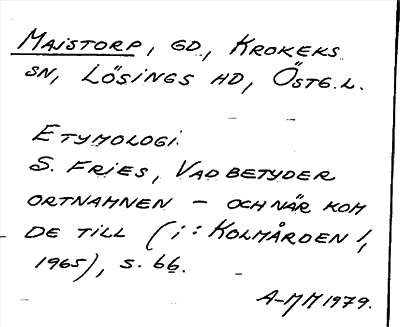 Majstorp, GD, Krokeks
sn, Lösings hd, Östg.l.
Etymologi.
S. Fries, Vad betyder
ortnamnen – och när kom
de till (i: Kolmården 1,
1965), s. 66.
A-MM 1979.